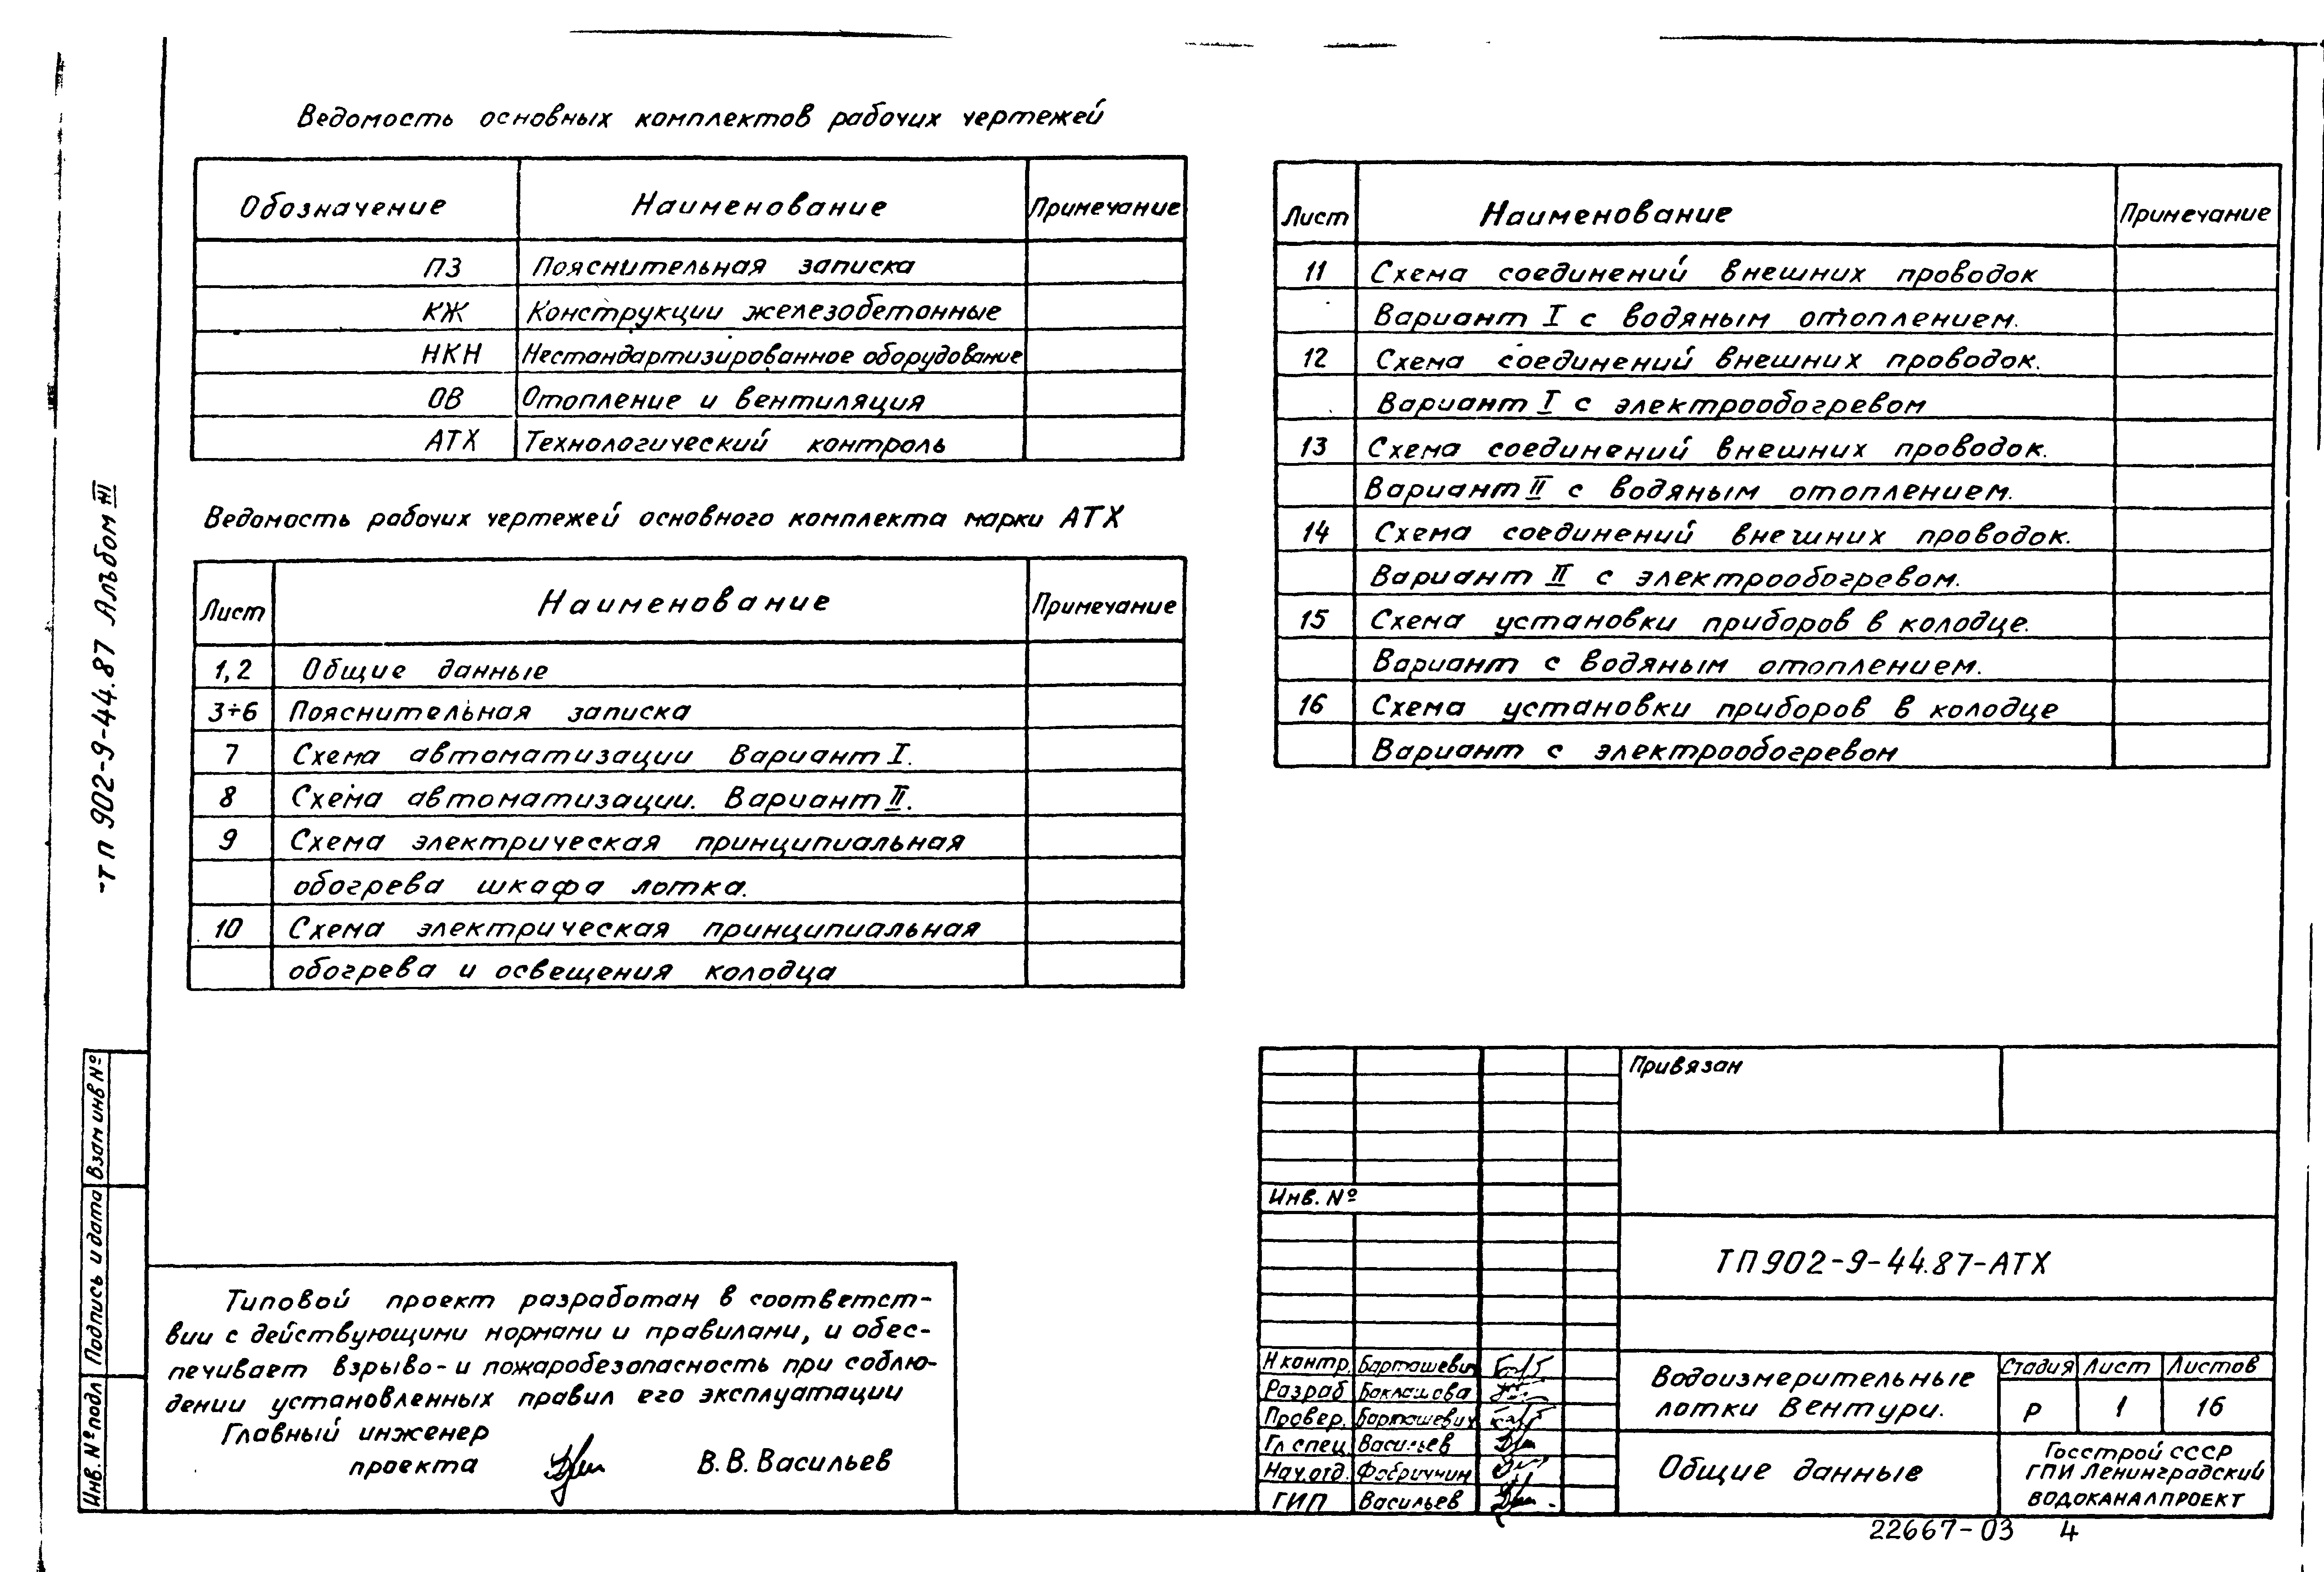 Ведомость основных комплектов рабочих чертежей
Обозначение Наименование Примечание
ПЗ Пояснительная записка
КЖ Конструкции железобетонные
НКН Нестандартизированное оборудование
ОВ Отопление и вентиляция
АТХ Технологический контроль
Ведомость рабочих чертежей основного комплекта марки АТХ
Лист Наименование Примечание
1,2 Общие данные
3÷6 Пояснительная записка
7 Схема автоматизации Вариант I.
8 Схема автоматизации. Вариант II.
9 Схема электрическая принципиальная
обогрева шкафа лотка.
10 Схема электрическая принципиальная
обогрева и освещения колодца
Лист Наименование Примечание
11 Схема соединений внешних проводок
Вариант I с водяным отоплением.
12 Схема соединений внешних проводок.
Вариант I с электрообогревом
13 Схема соединений внешних проводок.
Вариант II с водяным отоплением.
14 Схема соединений внешних проводок.
Вариант II с электрообогревом.
15 Схема установки приборов в колодце.
Вариант с водяным отоплением.
16 Схема установки приборов в колодце
Вариант с электрообогревом
ТП 902-9-44.87 Альбом III
Взам инв №
Подпись и дата
Инв. № подл
Типовой проект разработан в соответст-
вии с действующими нормами и правилами, и обес-
печивает взрыво- и пожаробезопасность при соблю-
дении установленных правил его эксплуатации
Главный инженер
проекта В.В.Васильев
Привязан
Инв. №
ТП902-9-44.87-АТХ
Н контр. Барташевич
Разраб Баклашова
Провер. Барташевич
Гл спец Васильев
Нач.отд.
ГИП Васильев
Водоизмерительные
лотки Вентури.
Стадия Лист Листов
Р 1 16
Общие данные
Госстрой СССР
ГПИ Ленинградский
ВОДОКАНАЛПРОЕКТ
22667-03 4